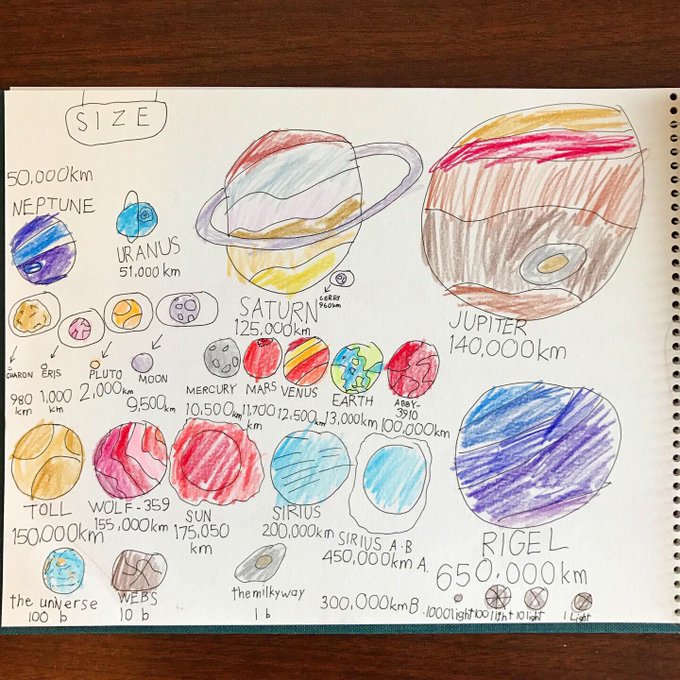 SIZE
50,000km
NEPTUNE
URANUS
51.000 km
SATURN
125,000km
960km
JUPITER
140,000km
CHARON
980
km
ERIS
1,000
km
PLUTO
2,000km
MOON
9,500km
MERCURY
10,500km
MARS
11,700
km
VENUS
12,500km
EARTH
13,000km
ABBY-
3910
100,000km
TOLL
150,000km
WOLF-359
155,000km
SUN
175,050
km
SIRIUS
200,000km
SIRIUS A.B
450,000km A.
300,000kmB.
RIGEL
650,000km
the unNerse
100 b
WEBS
10 b
themilkyway
1 b
1000light
100light
10light
1 Light